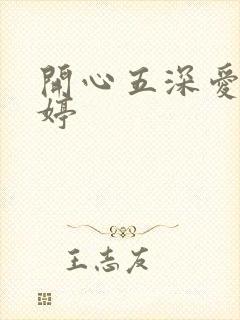 開心五深愛
婷
王志友